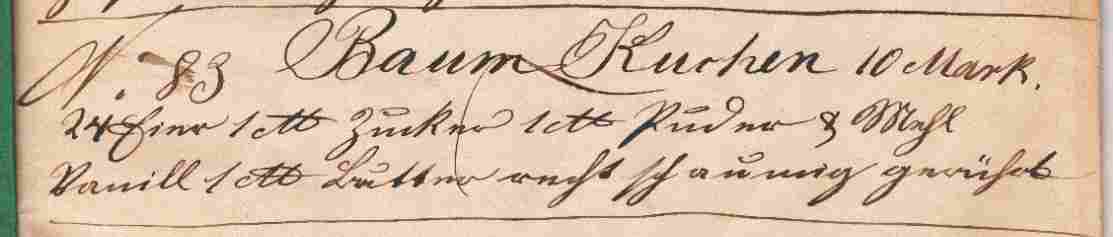 N. 83 Baum Kuchen 10 Mark.
24 Eier 1 ℔ Zucker 1 ℔ Puder & Mehl
Vanill 1 ℔ Butter recht schaumig gerührt